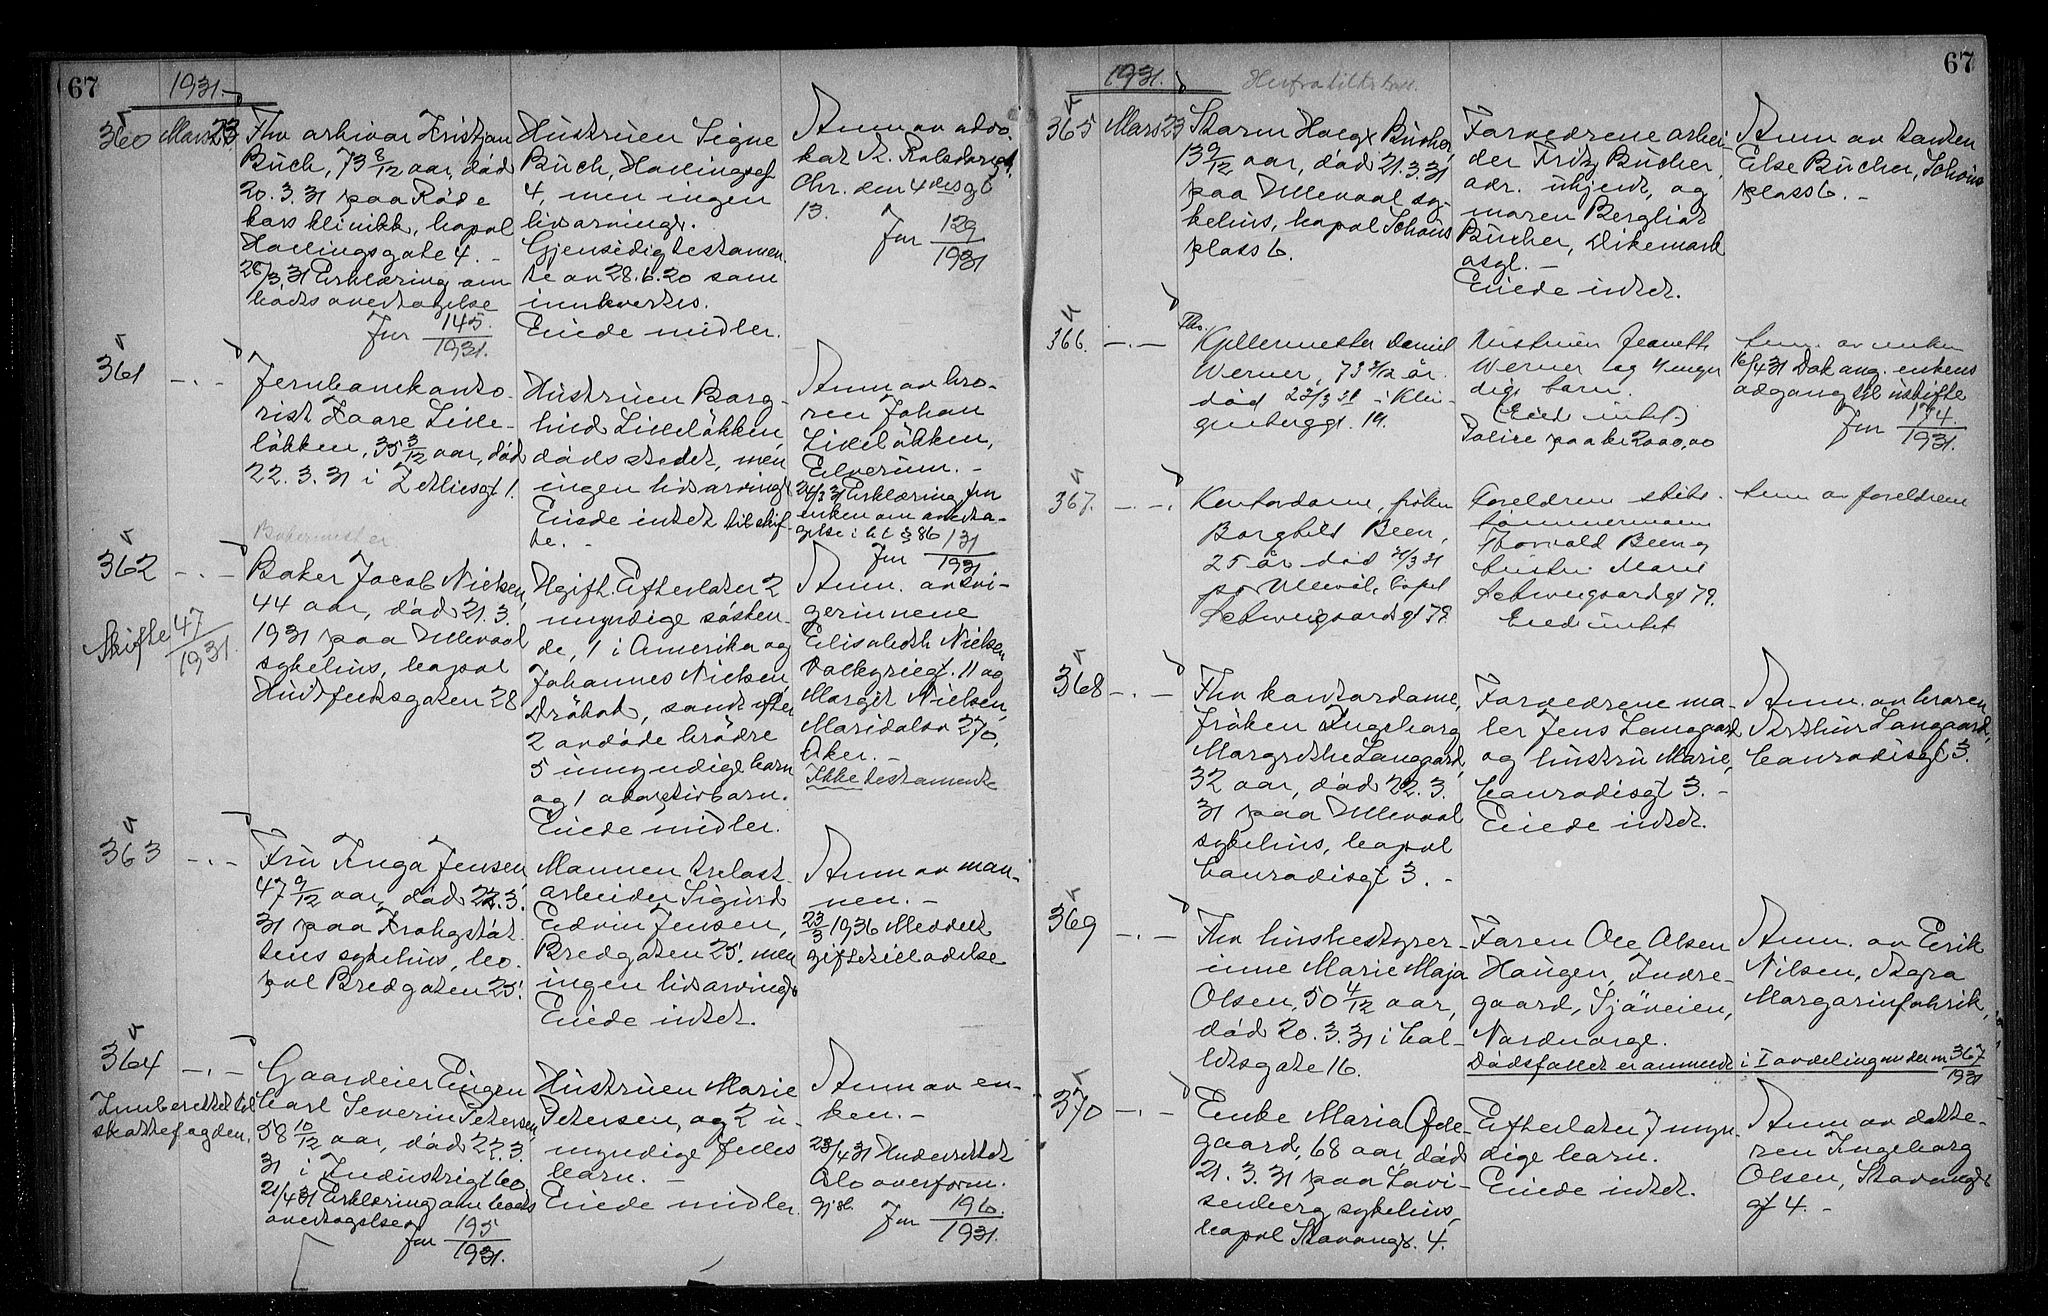 67
1931.
360 Mars 23 Fhv arkivar Kristian
Buch, 73 8/12 aar, död
20.3.31 paa Röde
kors klinikk, bopæl
Hallingsgate 4. -
26/3.31 Erklæring om
boets overtagelse
Jnr 145/1931.
Hustruen Signe
Buch, Hallingsgt
4, men ingen
livsarving.
Gjensidig testamen-
te av 28.6.20 som
innleveres.
Eiede midler.
Anm av advo-
kat
Chr. den 4des gt
13.
Jnr 129/1931
361 -"- Jernbanekonto-
rist Kaare Lille-
løkken, 35 3/12 aar, död
22.3.31 i Zetlitzsgt 1.
Hustruen Borg-
hild Lilleløkken,
dödsstedet, men
ingen livsarving.
Eiede intet til skif-
te. -
Anm av bro-
ren Johan
Lilleløkken,
Elverum. -
24/3 31 Erklæring fra
enken om overta-
gelse i h t § 86
Jnr 131/1931
Bakermester
362 -"- Baker Jacob Nielsen,
44 aar, död 21.3.
1931 paa Ullevaal
sykehus, bopæl
Huitfeldtsgaten 28
Skifte 47/1931.
Ugift. Efterlater 2
myndige sösken-
de, 1 i Amerika og
Johannes Nielsen,
Dröbak, samt efter
2 avdöde brödre
5 umyndige barn
og 1 adoptivbarn.
Eiede midler.
Anm. av svi-
gerinnene
Elisabeth Nielsen
Valkyriegt. 11 og
Margit Nielsen,
Maridalsv 270,
Aker. -
Ikke testamente
363 -"- Fru Inga Jensen,
47 9/12 aar, död 22.3.
31 paa Krohgstöt-
tens sykehus, bo-
pæl Bredgaten 25.
Mannen trelast-
arbeider Sigurd
Edvin Jensen,
Bredgaten 25, men
ingen livsarving.
Eiede intet.
Anm av man-
nen. -
23/3 1936 Meddelt
giftetilladelse
364 -"- Gaardeier Eugen
Carl Severin Petersen,
58 10/12 aar, död 22.3.
31 i Industrigt 60
21/4 31 Erklæring om boets
overtagelse
Jnr 195/1931.
Innberettet til
skattefogden.
Hustruen Marie
Petersen, og 2 u-
myndige felles
barn. -
Eiede midler.
Anm av en-
ken. -
23/4 31 Underrettet
Oslo overform.
Jnr 196/1931.
67
1931.
365 Mars 23 Bucher,
13 9/12 aar, död 21.3.31
paa Ullevaal sy-
kehus, bopæl Schous
plass 6.
Forældrene arbei-
der Fritz Bucher,
adr. ukjent, og
moren Bergliot
Bucher, Dikemark
asyl. -
Eiede intet.
Anm av tanten
Else Bucher, Schous
plass 6. -
366. -"- Fhv. Kjellermester Daniel
Werner, 73 3/12 år.
död 22/3 31 i Klin-
genberggt. 14.
Hustruen Jeanette
Werner og 4 myn-
dige barn.
(Eied intet)
Polise paa kr 2000,00
Anm. av enken
16/4 31 Dok ang. enkens
adgang til uskifte
Jnr 174/1931.
367. -"- Kontordame, fröken
Borghild Been,
25 år död 21/3 31
på Ullevål, bopel
Schweigaardsgt 79.
Foreldrene skibs-
tømmermann
Thorvald Been og
hustru Marie
Schweigaardsgt 79.
Eied intet
Anm av foreldrene
368 -"- Fhv kontordame,
fröken Ingeborg
Margrethe Langgaard,
32 aar, död 22.3.
31 paa Ullevaal
sykehus, bopæl
Conradisgt 3. -
Forældrene ma-
ler Jens Langgaard
og hustru Marie,
Conradisgt 3. -
Eiede intet.
Anm. av broren
Arthur Langaard,
Conradisgt 3.
369 -"- Fhv husbestyrer-
inne Marie Maja
Olsen, 50 4/12 aar,
död 20.3.31 i Col-
letsgate 16.
Faren Ole Olsen
Haugen, Indre-
gaard, Sjöveien,
Nordnorge.
Dödsfallet er anmeldt i I avdeling under nr 367/1931
Anm. av Erik
Nilsen, Agra
Margarinfabrik.
370 -"- Enke Maria Ode-
gaard, 68 aar, död
21.3.31 paa Lovi-
senberg sykehus,
bopæl Stavangg. 4.
Efterlater 7 myn-
dige barn.
Eiede intet.
Anm av datte-
ren Ingeborg
Olsen, Stavangg
gt 4. -